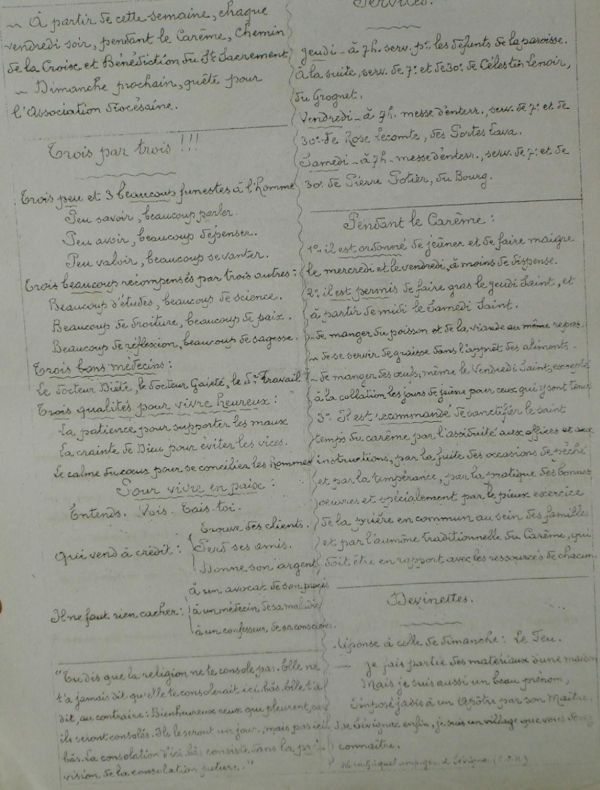 ~ À partir de cette semaine, chaque
vendredi soir, pendant le Carême, Chemin
de la Croix et Bénédiction du St Sacrement
~ Dimanche prochain, quête pour
l'Association diocésaine.
Trois par trois !!!
Trois peu et 3 beaucoup funestes à l'homme
Peu savoir, beaucoup parler.
Peu avoir, beaucoup dépenser.
Peu valoir, beaucoup se vanter.
Trois beaucoup récompensés par trois autres :
Beaucoup d'études, beaucoup de science.
Beaucoup de droiture, beaucoup de paix.
Beaucoup de réflexion, beaucoup de sagesse.
Trois bons médecins :
Le docteur Diète, le docteur Gaieté, le Dr Travail
Trois qualités pour vivre heureux :
La patience pour supporter les maux
La crainte de Dieu pour éviter les vices.
Le calme du cœur pour se concilier les hommes
Pour vivre en paix :
Entends. Vois. Tais-toi.
Qui vend à crédit :
Trouve des clients.
Perd ses amis.
Donne son argent
Il ne faut rien cacher :
à son avocat de son procès
à un médecin de sa maladie
à un confesseur de sa conscience
"Tu dis que la religion ne te console pas. Elle ne
t'a jamais dit qu'elle te consolerait ici-bas. Elle t'a
dit, au contraire : Bienheureux ceux qui pleurent, car
ils seront consolés. Ils le seront un jour, mais pas ici-
bas. La consolation d'ici-bas consiste dans la pré-
vision de la consolation future."
Services.
Jeudi - à 7h. serv. pr. les défunts de la paroisse.
À la suite, serv. de 7e et de 30e de Célestin Lenoir,
du Grognet.
Vendredi - à 7h. messe d'enterr., serv. de 7e et de
30e de Rose Lecomte, des Portes
Samedi - à 7h - messe d'enterr., serv. de 7e et de
30e de Pierre Potier, du Bourg.
Pendant le Carême :
1o. il est ordonné de jeûner et de faire maigre
le mercredi et le vendredi, à moins de dispense.
2o. il est permis de faire gras le jeudi Saint, et
à partir de midi le Samedi Saint.
- de manger du poisson et de la viande au même repas.
- de se servir de graisse dans l'apprêt des aliments -
- de manger des œufs, même le Vendredi Saint, excepté
à la collation les jours de jeûne pour ceux qui y sont tenus
3o. Il est recommandé de sanctifier le saint
temps du carême par l'assiduité aux offices et aux
instructions, par la fuite des occasions de péché
et par la tempérance, par la pratique des bonnes
œuvres et spécialement par le pieux exercice
de la prière en commun au sein des familles
et par l'aumône traditionnelle du Carême, qui
doit être en rapport avec les ressources de chacun.
Devinettes.
Réponse à celle de dimanche : Le Feu.
- Je fais partie des matériaux d'une maison
Mais je suis aussi un beau prénom,
Imposé jadis à un Apôtre par son Maître.
enfin, je suis un village que vous
connaître.